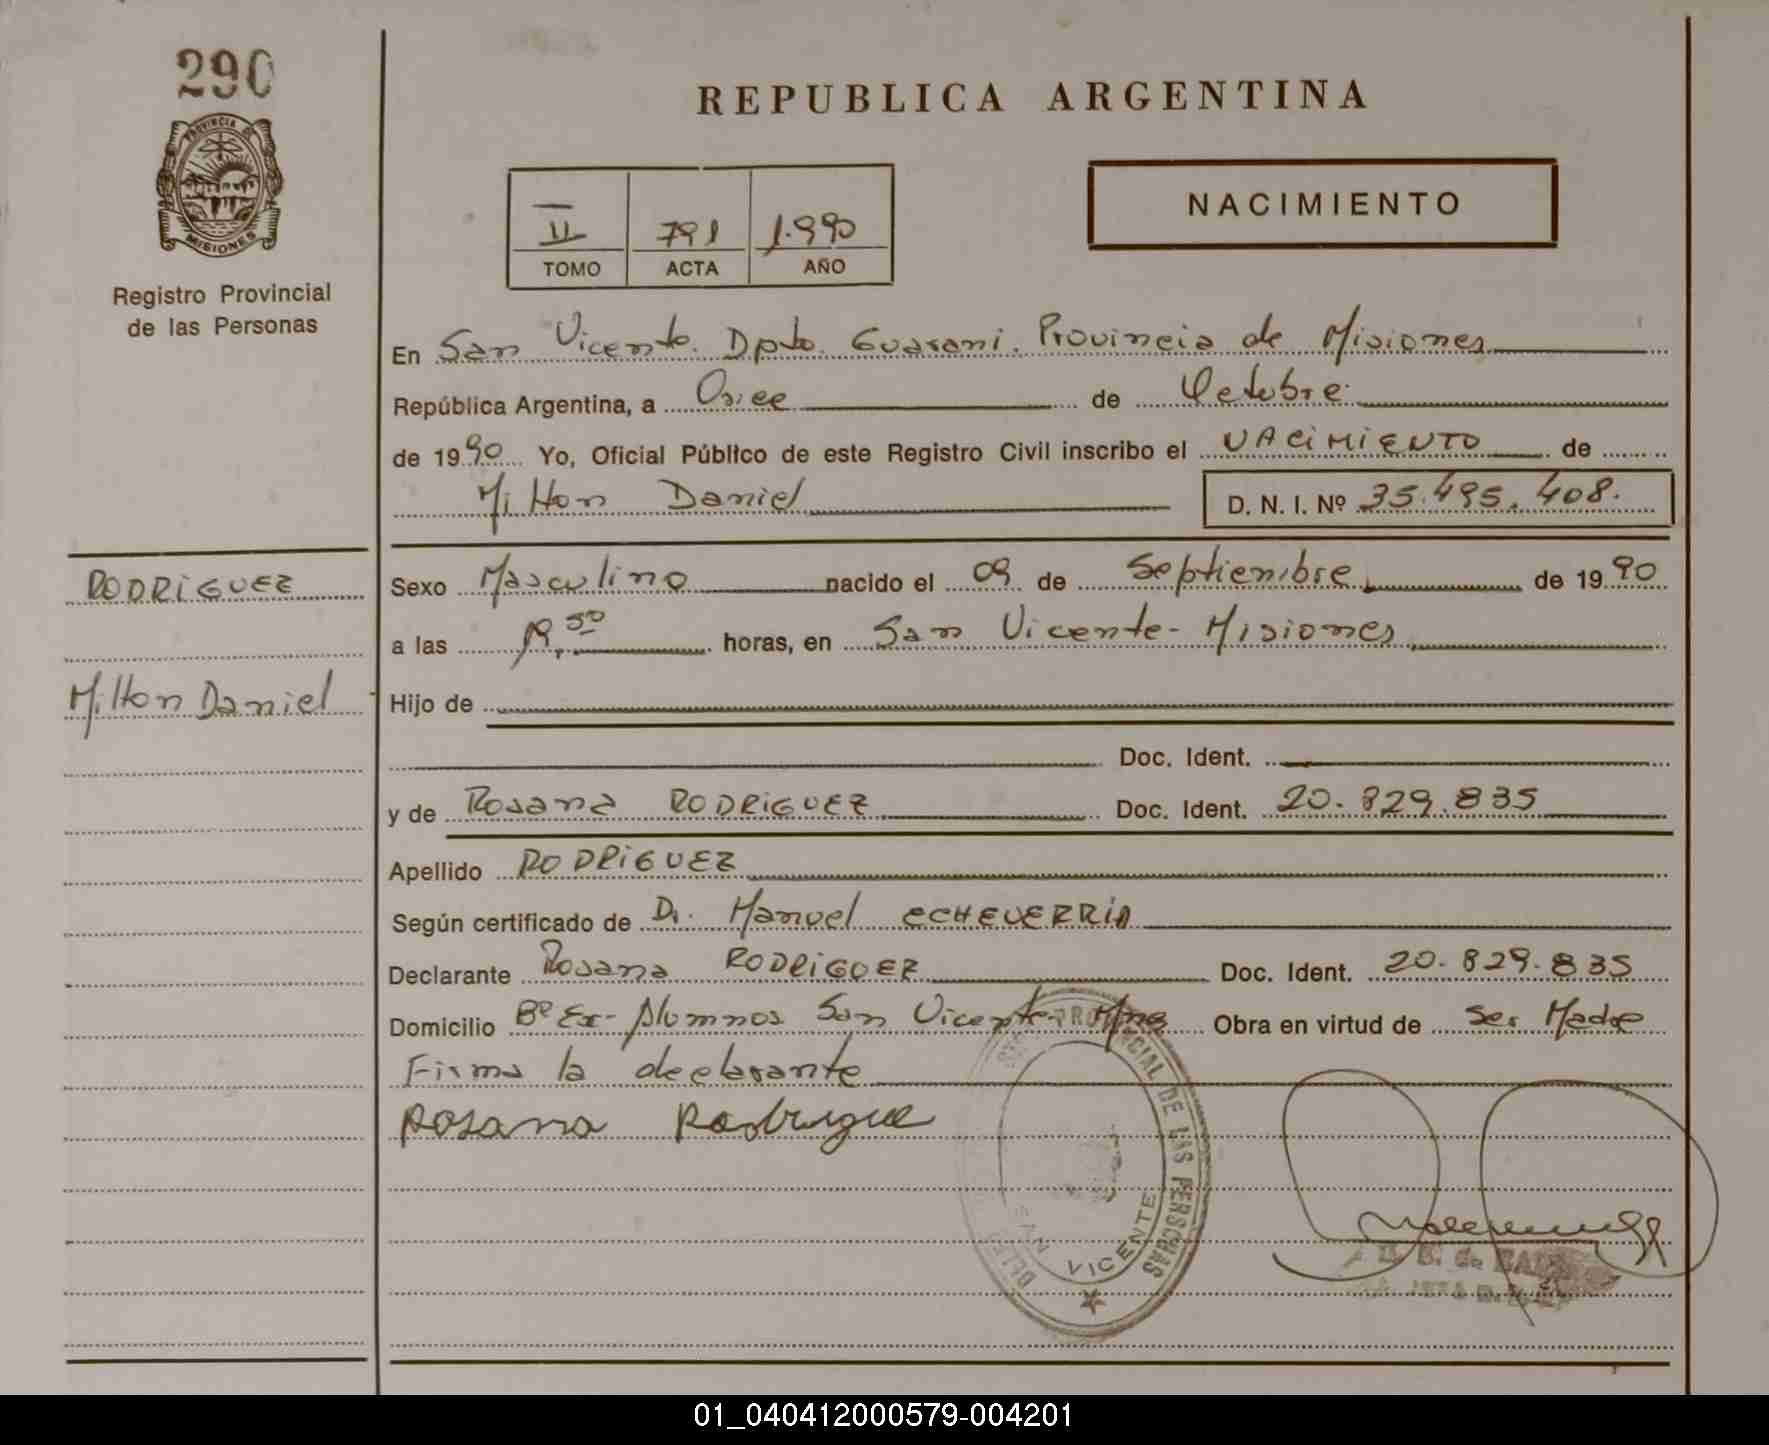 290
PROVINCIA DE
MISIONES
Registro Provincial
de las Personas
REPUBLICA ARGENTINA
NACIMIENTO
II 791 1.990
TOMO ACTA AÑO
En San Vicente. Dpto. Guarani. Provincia de Misiones
República Argentina, a Once de Octubre
de 1990 Yo, Oficial Público de este Registro Civil inscribo el NACiMiENTO de
Milton Daniel D. N. I. Nº 35.495.408.
RODRiGUEZ
Milton Daniel
Sexo Masculino nacido el 09 de Septiembre de 1990
a las horas, en San Vicente - Misiones
Hijo de
Doc. Ident.
y de Rosana RODRiGUEZ Doc. Ident. 20.829.835
Apellido RODRiGUEZ
Según certificado de Dr. Manuel ECHEVERRíA
Declarante Rosana RODRiGUEZ Doc. Ident. 20.829.835
Domicilio Bº Ex-Alumnos San Vicente - Mnes Obra en virtud de Ser Madre
Firma la declarante
Rosana Rodrigue
PROVINCIAL DE LAS PERSONAS
SAN VICENTE
01_040412000579-004201